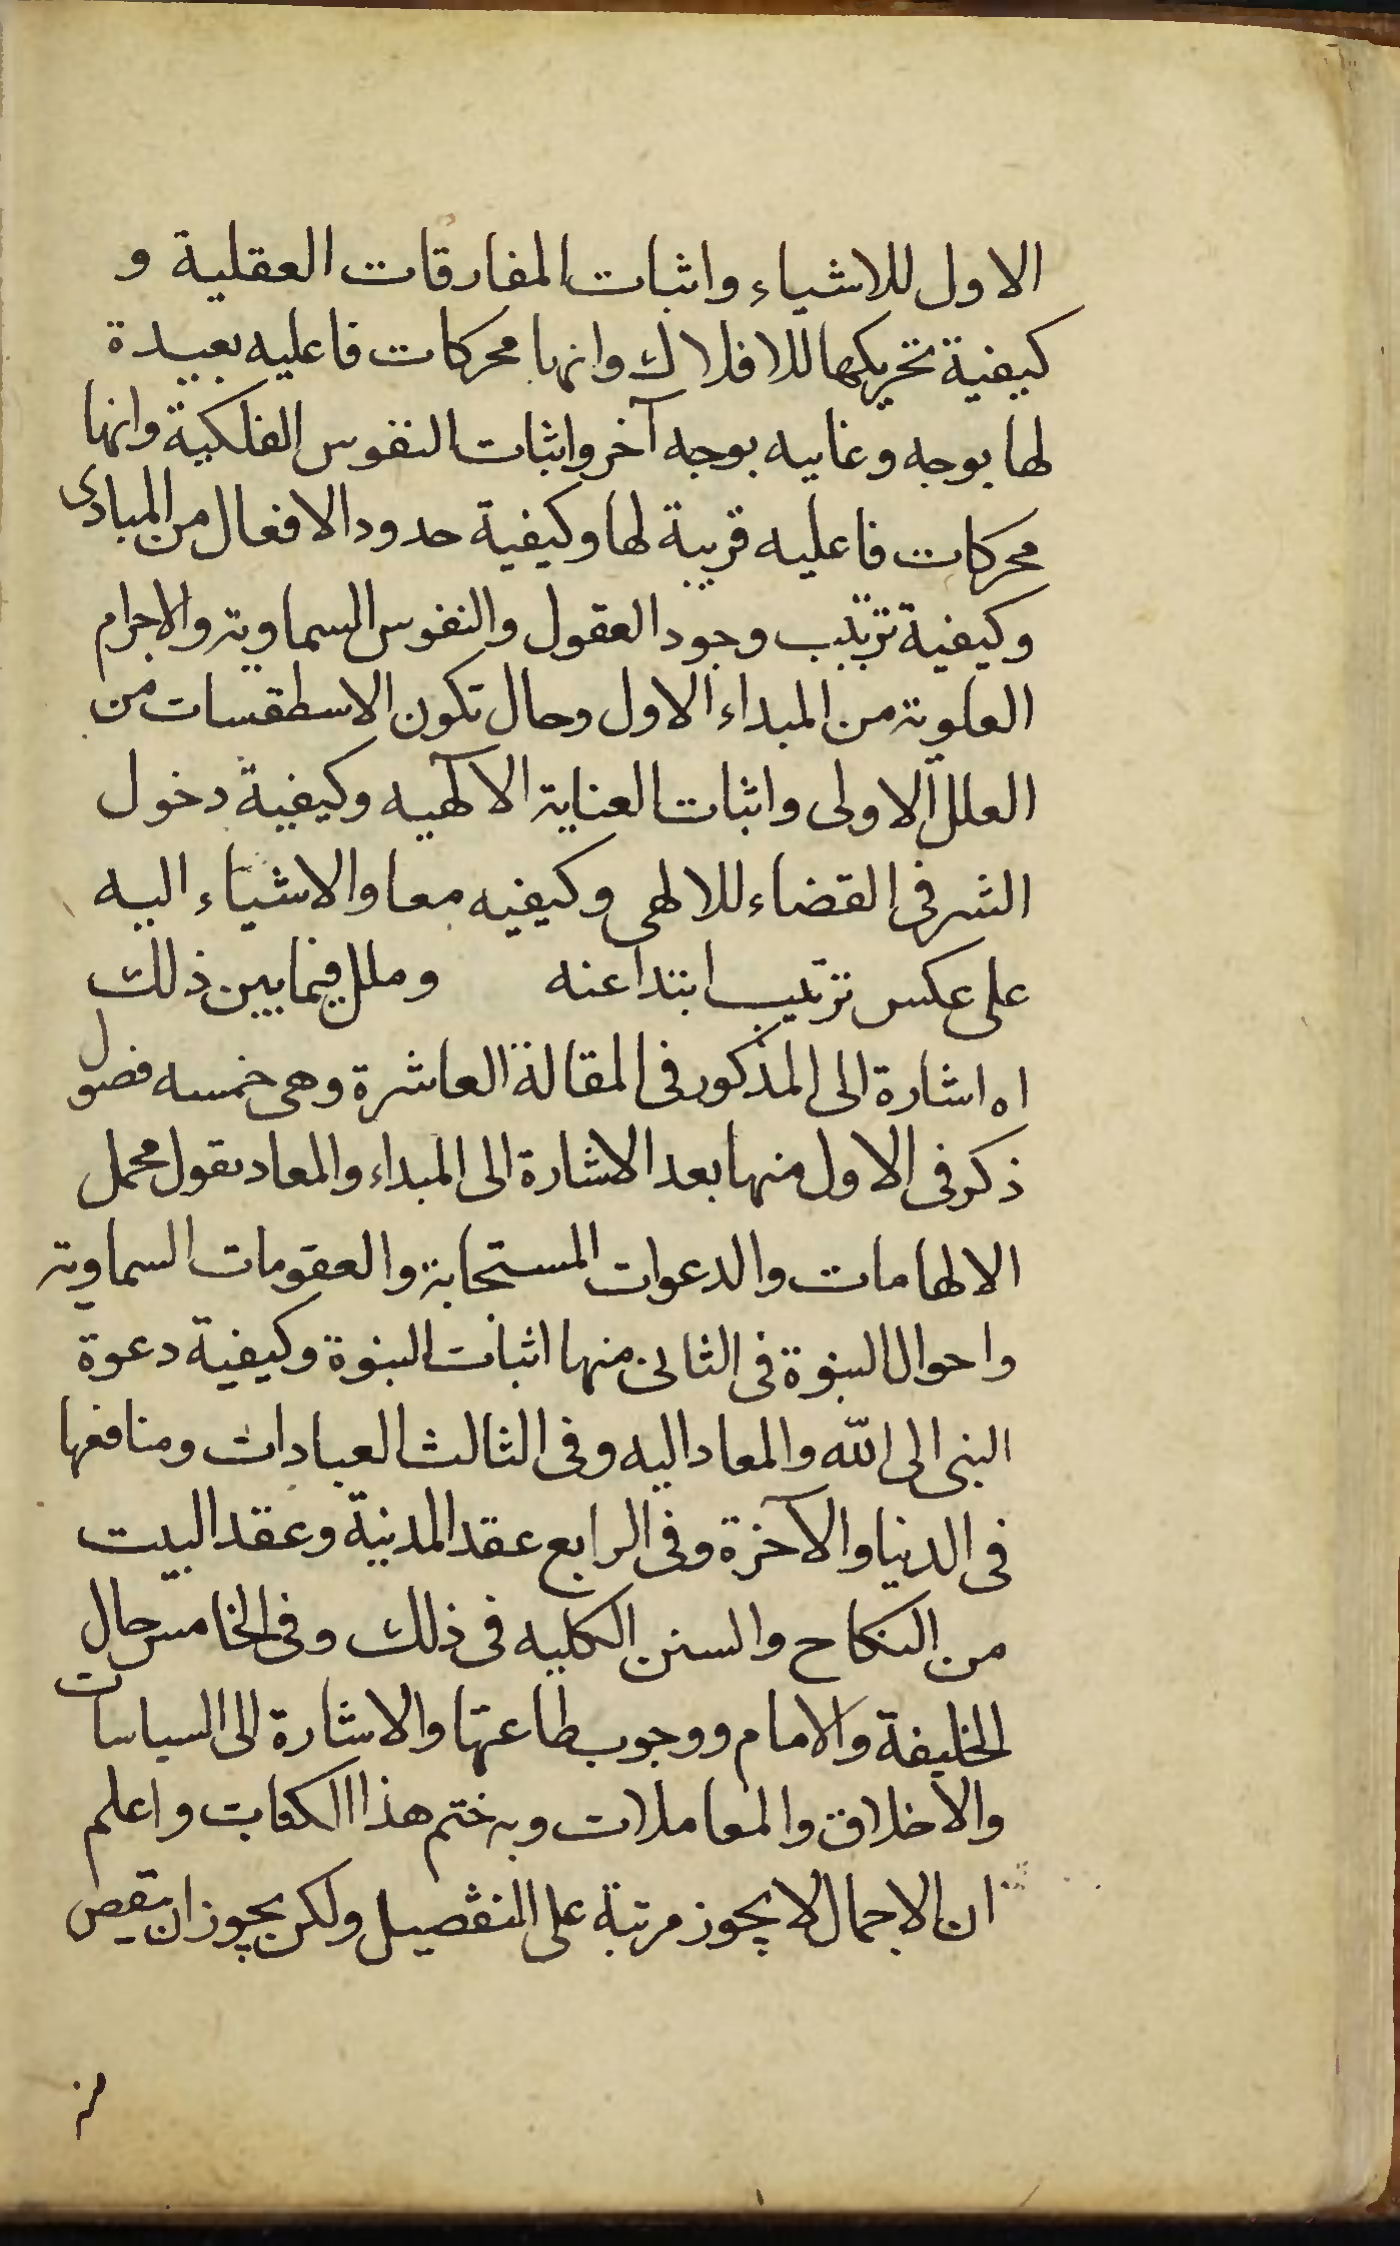 الاول للاشياء واثبات المفارقات العقلية و
كيفية تحريكها للافلاك وانها محركات فاعليه بعيدة
لها بوجه وغاييه بوجه آخر واثبات النفوس الفلكية وانها
محركات فاعليه قريبة لها وكيفية حدود الافعال من المبادى
وكيفية ترتيب وجود العقول والنفوس السماوية والاجرام
العلوية من المبداء الاول وحال تكون الاسطقسات من
العلل الاولى واثبات العناية الالهيه وكيفية دخول
الشر فى القضاء للالهى وكيفيه معاو الاشياء اليه
على عكس ترتيب ابتدا عنه وملل فيما بين ذلك
اه اشارة الى المذكور فى المقالة العاشرة وهى خمسه فصول
ذكر فى الاول منها بعد الاشارة الى المبداء والمعاد بقول محمل
الالهامات والدعوات المستحابة والعقومات السماوية
واحوال النبوة فى الثانى منها اثبات النبوة وكيفية دعوة
النبى الى الله والمعاد اليه وفى الثالث العبادات ومنافعها
فى الدنيا والآخرة وفى الرابع عقد المدنية وعقد البيت
من النكاح والسنن الكليه فى ذلك وفى الخامس حال
الخليفة والامام ووجوب طاعتها والاشارة الى السياسات
والاخلاق والمعاملات وبه ختم هذا الكتاب واعلم
ان الاجمال لا يجوز مرتبة على التفصيل ولكن يجوز ان ينقص